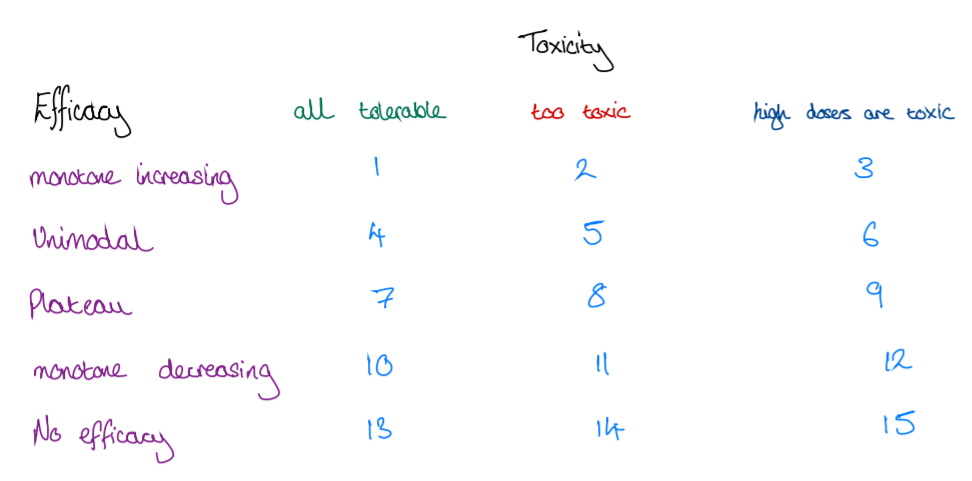 Toxicity
Efficacy all tolerable too toxic high doses are toxic
monotone increasing 1 2 3
Unimodal 4 5 6
Plateau 7 8 9
monotone decreasing 10 11 12
No efficacy 13 14 15